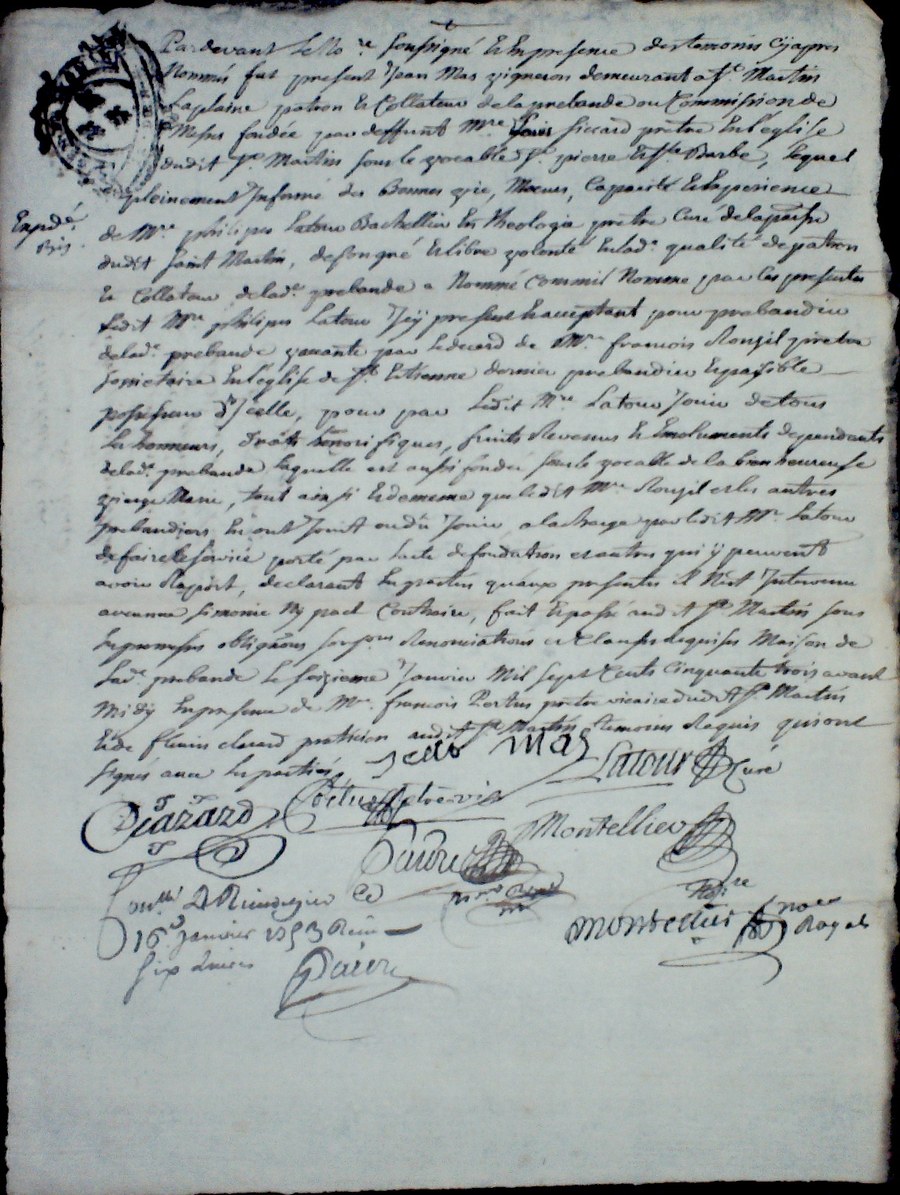 Par devant le No.re soussigné et En presence des temoins cy apres
Nommés fut present Jean Mas vigneron demeurant a S.t Martin
La plaine patron et Collateur de la prebande ou Commission de
Messes fondée par deffunt M.re Louis siccard pretre En l'eglise
dudit S.t Martin sous le vocable S.t pierre et S.te Barbe, Lequel
pleinement Informé des Bonnes vie, Moeurs, Capacité et Experience
de M.re philipes Latour Bachellier En theologie pretre Curé de la paroisse
dudit saint Martin, de son gré et libre volonté En lad.e qualité de patron
Expedié
bis
Et Collateur de lad.e prebande a Nommé Commis Nomme par ces presentes
Ledit M.re philipes Latour Icy present & acceptant pour prebandier
de lad.e prebande vacante par le deced de M.re francois Rouzil pretre
societaire En l'eglise de S.t Etienne dernier prebandier Et paisible
possesseur d'Icelle, pour par Ledit M.re Latour Jouir de tous
Les honneurs, droits honorifiques, fruits Revenus Et Emoluments dependants
de lad.e prebande Laquelle est aussi fondée sous le vocable de la bien heureuse
vierge Marie, tout ainsi Et de meme que ledit M.re Rouzil et les autres
prebandiers En ont Jouit ou dû Jouir, a la charge par ledit M.re Latour
de faire le service porté par l'acte de fondation et autres qui y peuvent
avoir Raport, declarant Les parties qu'aux presentes Il N'est Intervenu
aucunne simonie Ny pact Contraire, fait Et passé aud.t S.t Martin sous
Les promesses obligãons soumissions Renonciations et Clauses Requises Maison de
Lad.e prebande Le seizieme Janvier Mil sept Cents Cinquante trois avant
Midy En presence de M.re francois pretre vicaire dud.t S.t Martin
Et de fleuris praticien audit S.t Martin temoins Requis qui ont
signés avec Les parties
Jean Mas Latour Curé
ptre vic
Montellier
Faure
Not.re
Con.llé A Rivedegier Le
16.e Janvier 1753 Reçu
six livres
Faure
Montellier no.re Royal